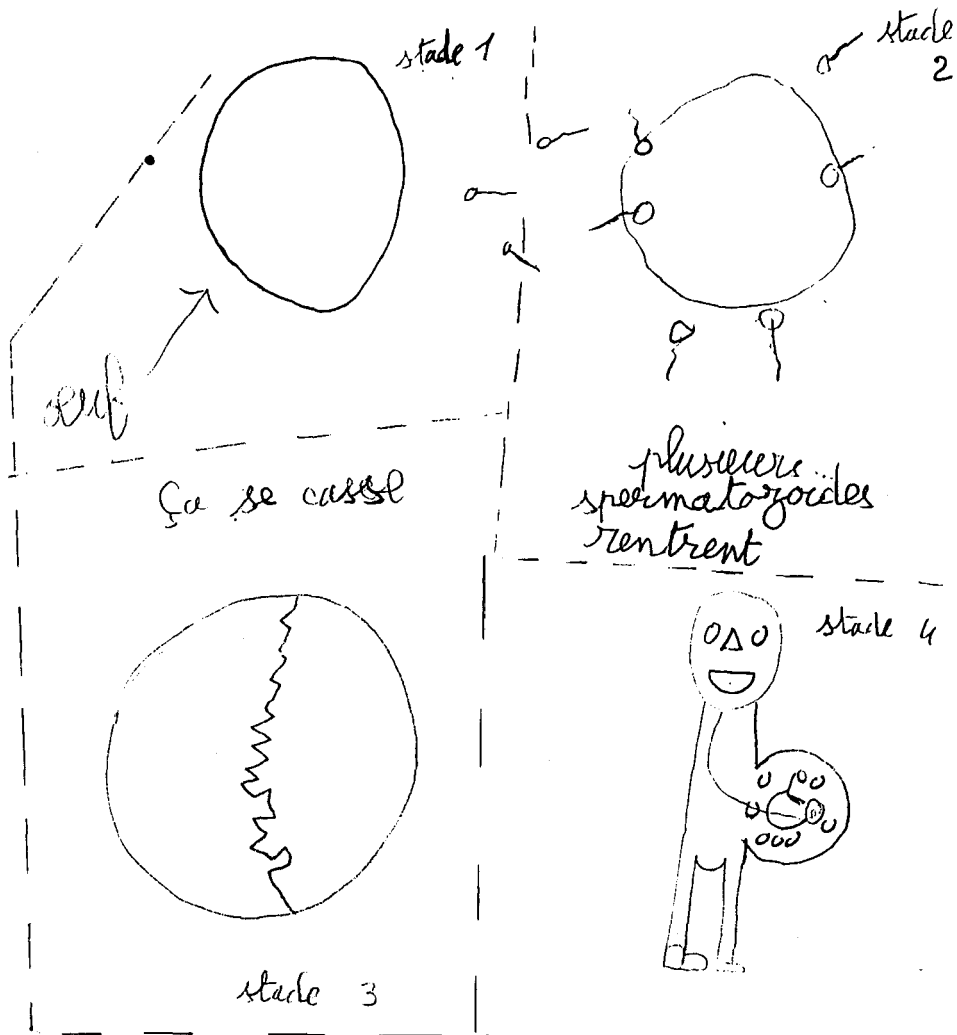 stade 1
œuf
stade
2
plusieurs
spermatozoïdes
rentrent
Ça se casse
stade 3
stade 4